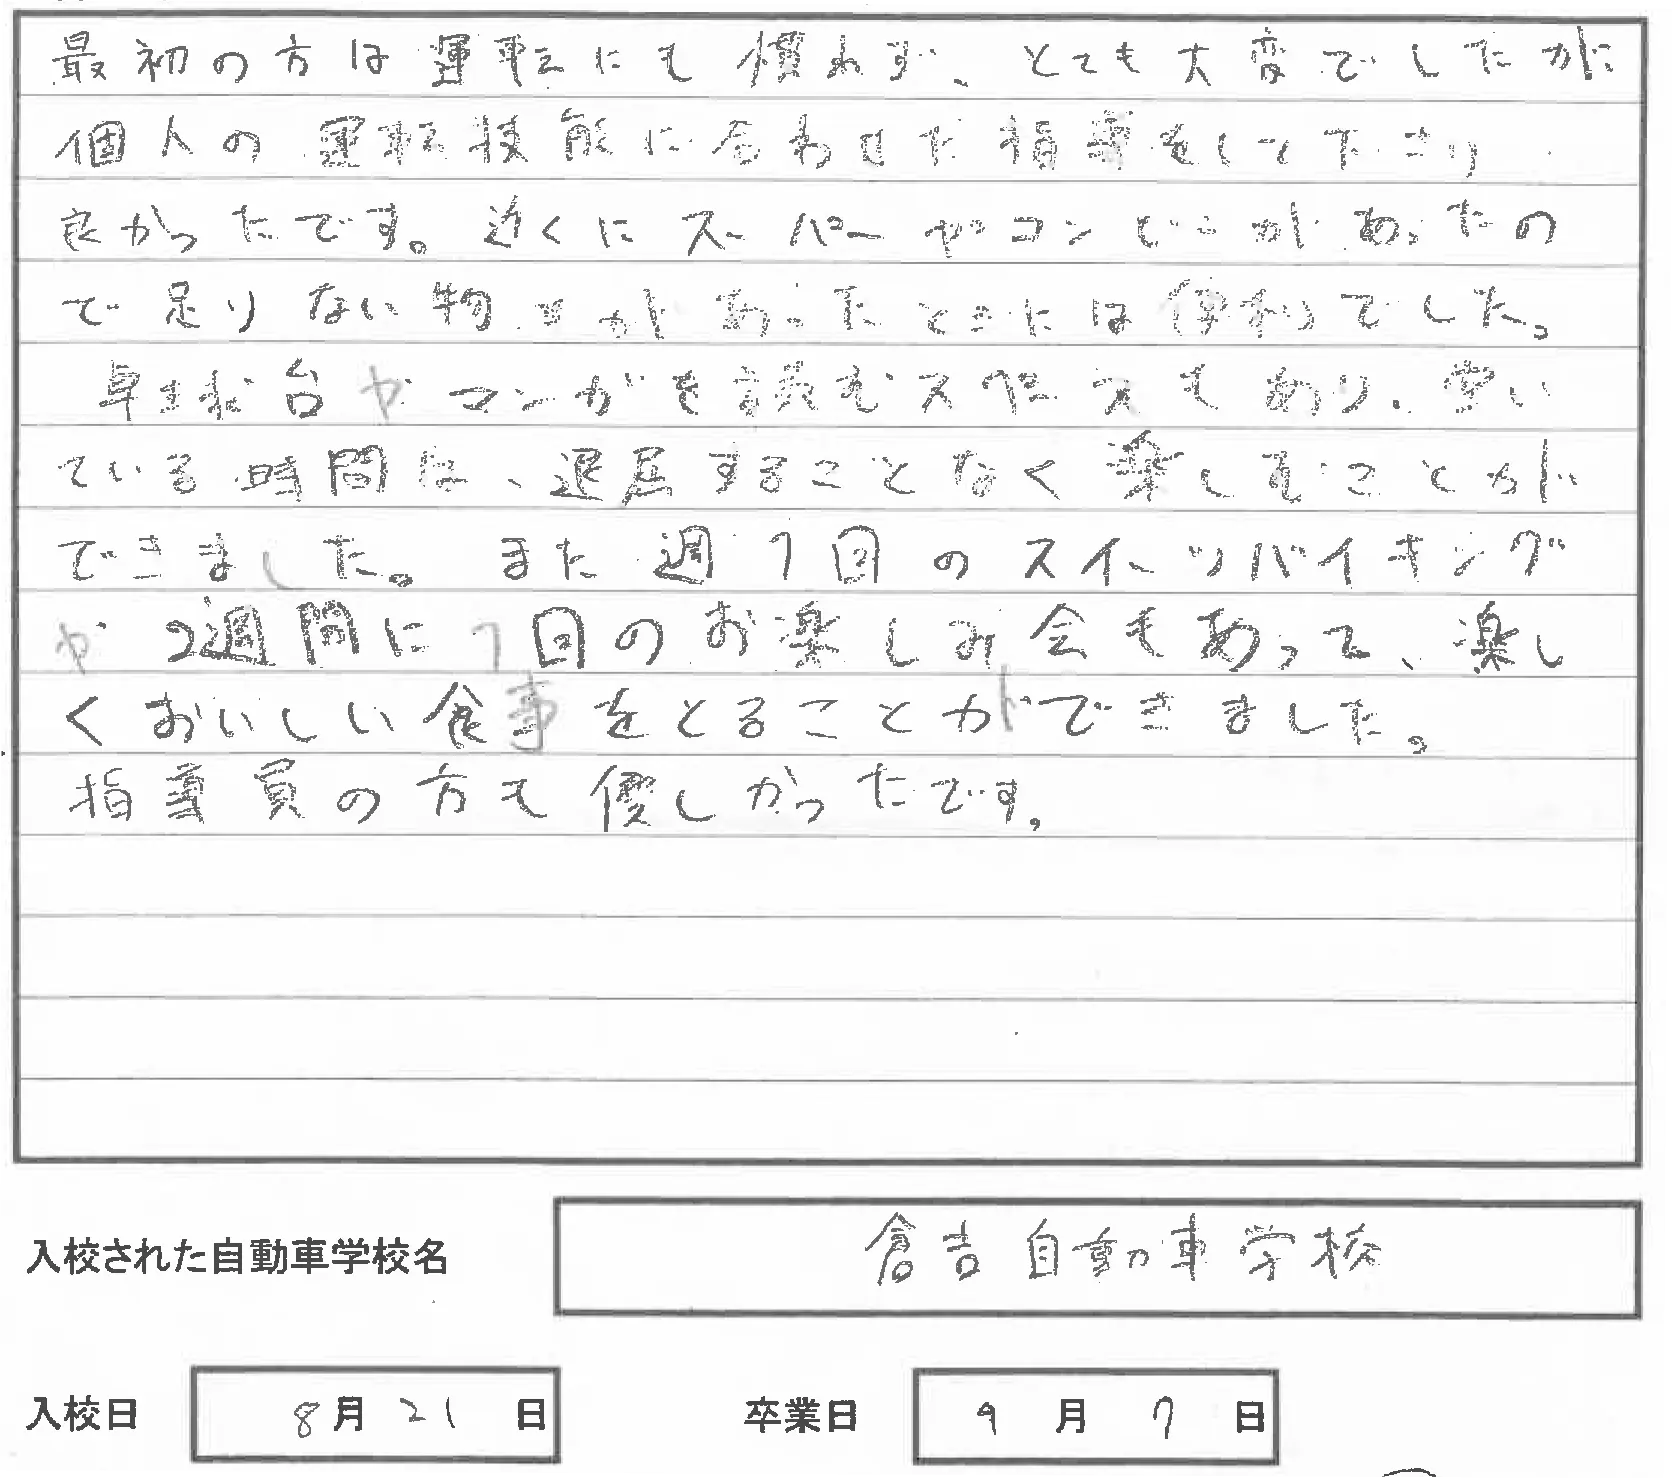 最初の方は運転にも慣れず、とても大変でしたが
個人の運転技能に合わせた指導をして下さり
良かったです。近くにスーパーやコンビニがあったの
で足りない物があったときには便利でした。
卓球台やマンガを読むスペースもあり、空い
ている時間は、退屈することなく楽しむことが
できました。また週1回のスイーツバイキング
や2週間に1回のお楽しみ会もあって、楽し
くおいしい食事をとることができました。
指導員の方も優しかったです。
入校された自動車学校名 倉吉自動車学校
入校日 8月21日 卒業日 9月7日